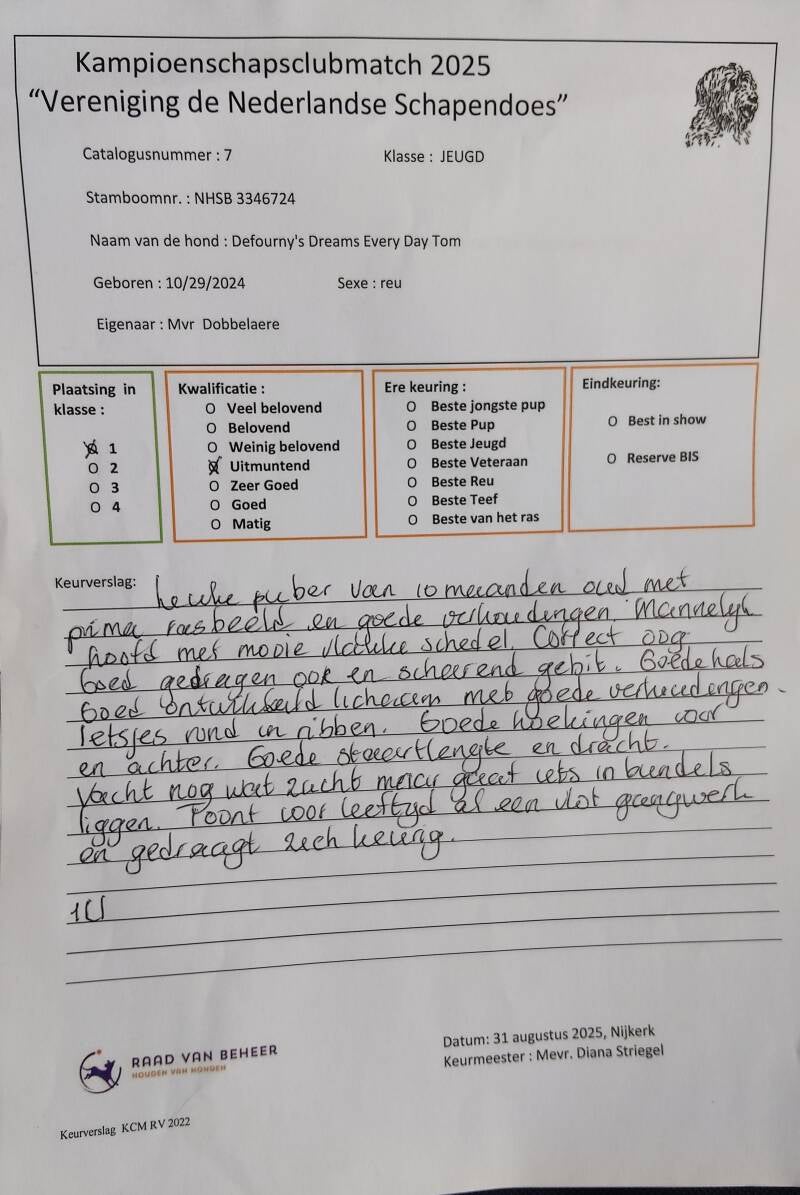 Kampioenschapsclubmatch 2025
"Vereniging de Nederlandse Schapendoes"
Catalogusnummer : 7 Klasse : JEUGD
Stamboomnr. : NHSB 3346724
Naam van de hond : Defourny's Dreams Every Day Tom
Geboren : 10/29/2024 Sexe : reu
Eigenaar : Mvr Dobbelaere
Plaatsing in
klasse :
1
O 2
O 3
O 4
Kwalificatie :
O Veel belovend
O Belovend
O Weinig belovend
Uitmuntend
O Zeer Goed
O Goed
O Matig
Ere keuring :
O Beste jongste pup
O Beste Pup
O Beste Jeugd
O Beste Veteraan
O Beste Reu
O Beste Teef
O Beste van het ras
Eindkeuring:
O Best in show
O Reserve BIS
Keurverslag: Leuke puber van 10 maanden oud met
prima rasbeeld en goede verhoudingen. Mannelyk
hoofd met mooie vlakke schedel. Correct oog
Goed gedragen oor en scheerend gebit. Goede hals
Goed ontwikkeld lichaam met goede verhoudingen.
Ietsjes rond in ribben. Goede hoekingen voor
en achter. Goede staartlengte en dracht.
Vacht nog wat zacht maar gaat iets in bundels
liggen. Toont voor leeftyd al een vlot gangwerk
en gedraagt zich keurig.
1U
RAAD VAN BEHEER
HOUDEN VAN HONDEN
Datum: 31 augustus 2025, Nijkerk
Keurmeester : Mevr. Diana Striegel
Keurverslag KCM RV 2022